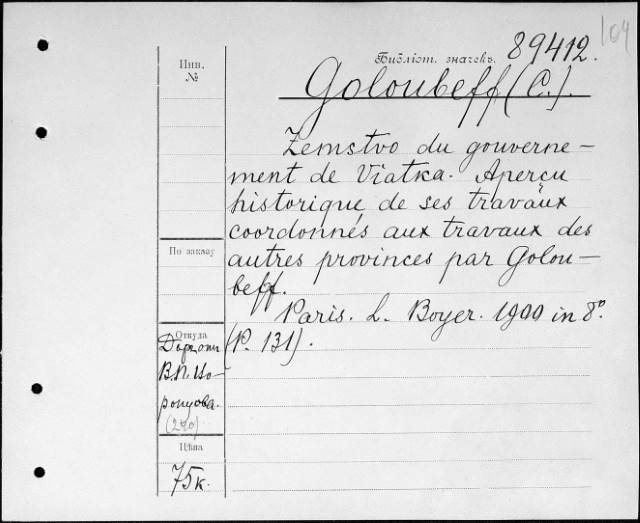 104
Библіот. значекъ. 89412.
Инв. №
Goloubeff (C.).
Zemstvo du gouverne-
ment de Viatka. Aperçu
historique de ses travaux
coordonnés aux travaux des
autres provinces par Golou-
beff.
Paris. L. Boyer. 1900 in 8°.
(P. 131).
По заказу
Откуда
В.П.
(290)
Цѣна
75к.